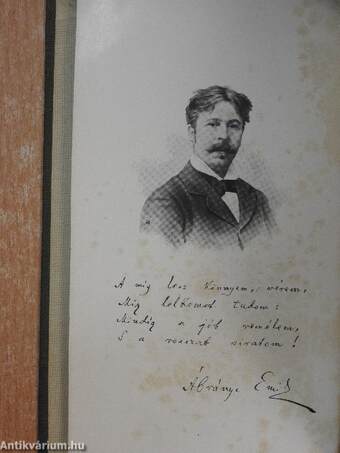 A míg lesz könnyem, vérem,
Míg lelkemet tudom:
Mindíg a jót remélem,
S a rosszat siratom!
Ábrányi Emil
Antikvárium.hu
Antikvárium.hu